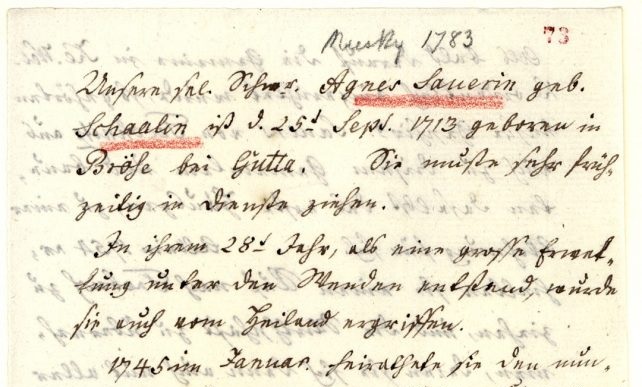 Niesky 1783
73
Unsere sel. Schwr. Agnes Sauerin geb.
Schaalin ist d. 25t Sept. 1713 geboren in
Bröse bei Gutta. Sie muste sehr früh-
zeitig in Dienste ziehen.
In ihrem 28t Jahr, als eine grosse Erwek-
kung unter den Wenden entstand, wurde
sie auch vom Heiland ergriffen.
1745 im Januar. heirathete sie den nun-